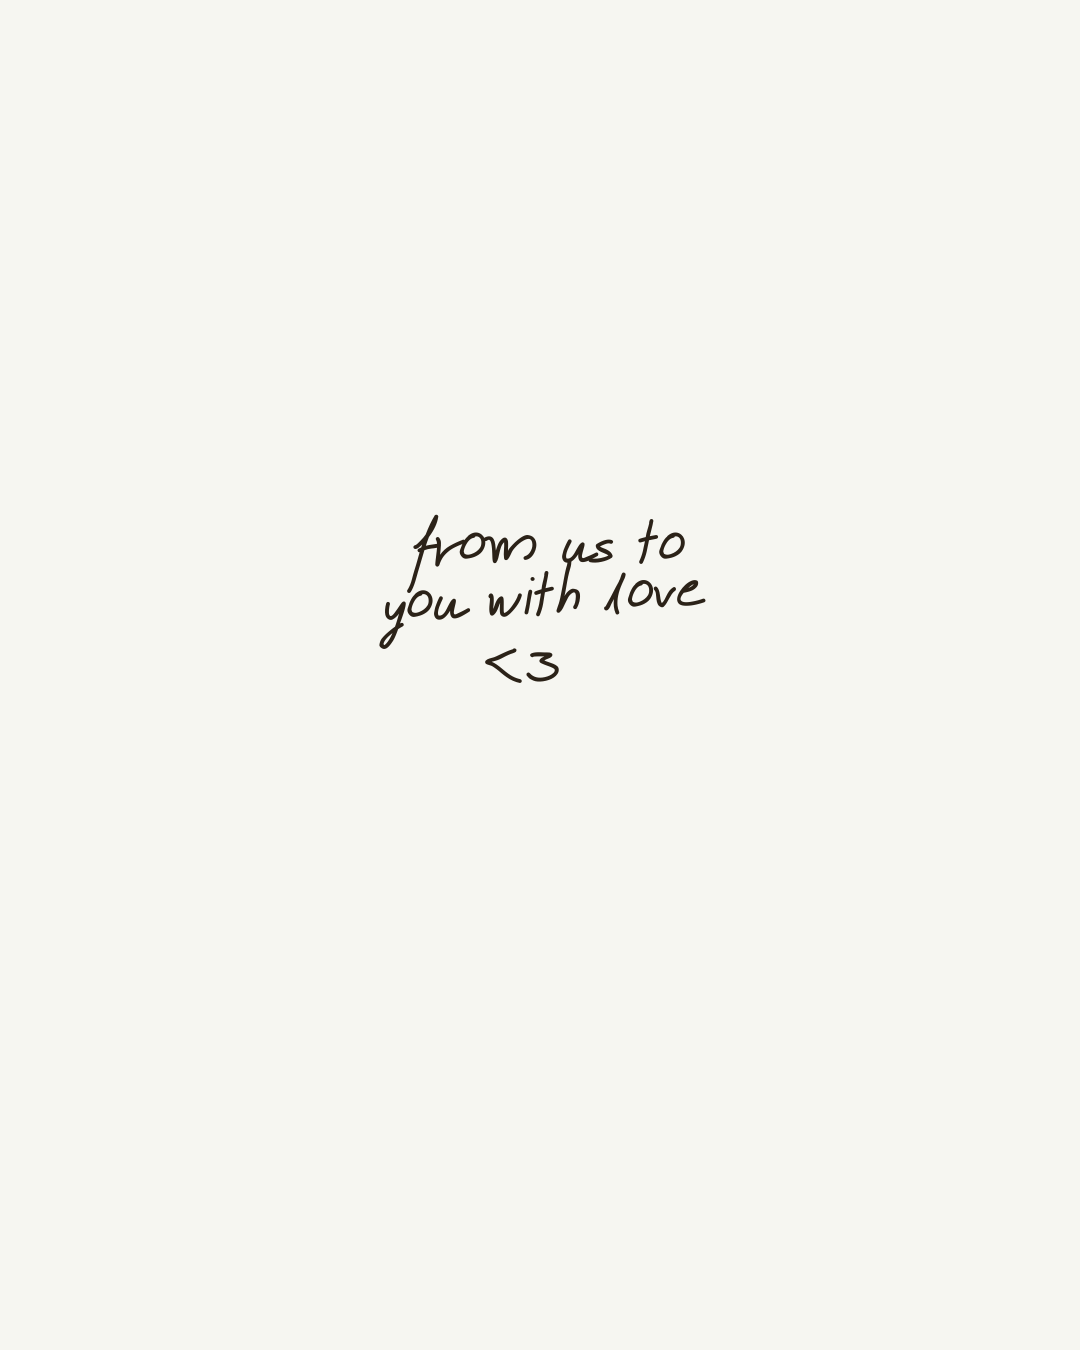 from us to
you with love
<3